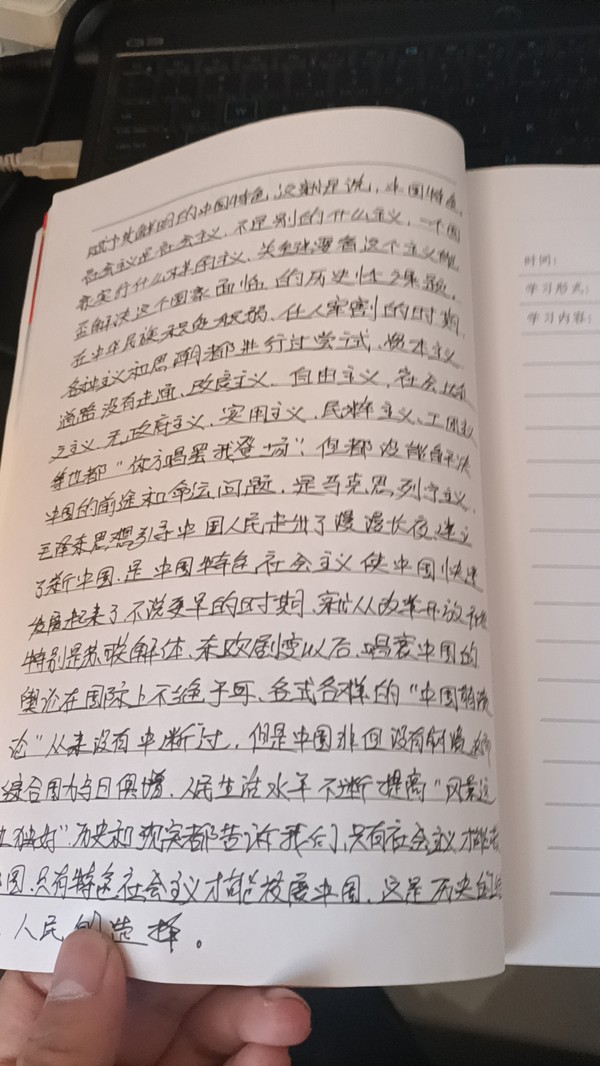 赋予其鲜明的中国特色，这就是说，中国特色
社会主义是社会主义，不是别的什么主义，一个国
家实行什么样的主义，关键要看这个主义能
否解决这个国家面临的历史性课题，
在中华民族积贫积弱、任人宰割的时期，
各种主义和思潮都进行过尝试，资本主义
道路没有走通，改良主义、自由主义、社会
主义、无政府主义、实用主义、民粹主义、工团主
等也都“你方唱罢我登场”，但都没能解决
中国的前途和命运问题，是马克思列宁主义、
毛泽东思想引导中国人民走出了漫漫长夜，建立
了新中国，是中国特色社会主义使中国快速
发展起来了不说更早的时期，就从改革开放
特别是苏联解体、东欧剧变以后，唱衰中国的
舆论在国际上不绝于耳、各式各样的“中国崩溃
论”从来没有中断过，但是中国非但没有崩溃
综合国力与日俱增，人民生活水平不断提高“风景这
边独好”历史和现实都告诉我们，只有社会主义才能
中国，只有特色社会主义才能发展中国，这是历史的
人民的选择。
时间：
学习形式：
学习内容：